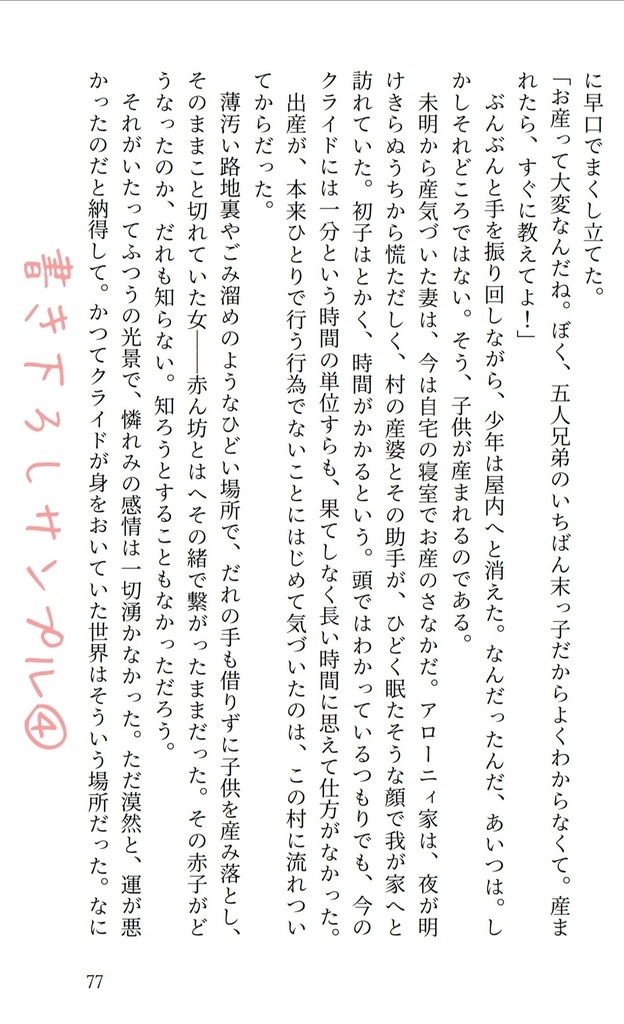 に早口でまくし立てた。
「お産って大変なんだね。ぼく、五人兄弟のいちばん末っ子だからよくわからなくて。産ま
れたら、すぐに教えてよ！」
　ぶんぶんと手を振り回しながら、少年は屋内へと消えた。なんだったんだ、あいつは。し
かしそれどころではない。そう、子供が産まれるのである。
　未明から産気づいた妻は、今は自宅の寝室でお産のさなかだ。アローニィ家は、夜が明
けきらぬうちから慌ただしく、村の産婆とその助手が、ひどく眠たそうな顔で我が家へと
訪れていた。初子はとかく、時間がかかるという。頭ではわかっているつもりでも、今の
クライドには一分という時間の単位すらも、果てしなく長い時間に思えて仕方がなかった。
　出産が、本来ひとりで行う行為でないことにはじめて気づいたのは、この村に流れつい
てからだった。
　薄汚い路地裏やごみ溜めのようなひどい場所で、だれの手も借りずに子供を産み落とし、
そのままこと切れていた女――赤ん坊とはへその緒で繋がったままだった。その赤子がど
うなったのか、だれも知らない。知ろうとすることもなかっただろう。
　それがいたってふつうの光景で、憐れみの感情は一切湧かなかった。ただ漠然と、運が悪
かったのだと納得して。かつてクライドが身をおいていた世界はそういう場所だった。なに
書き下ろしサンプル④
77